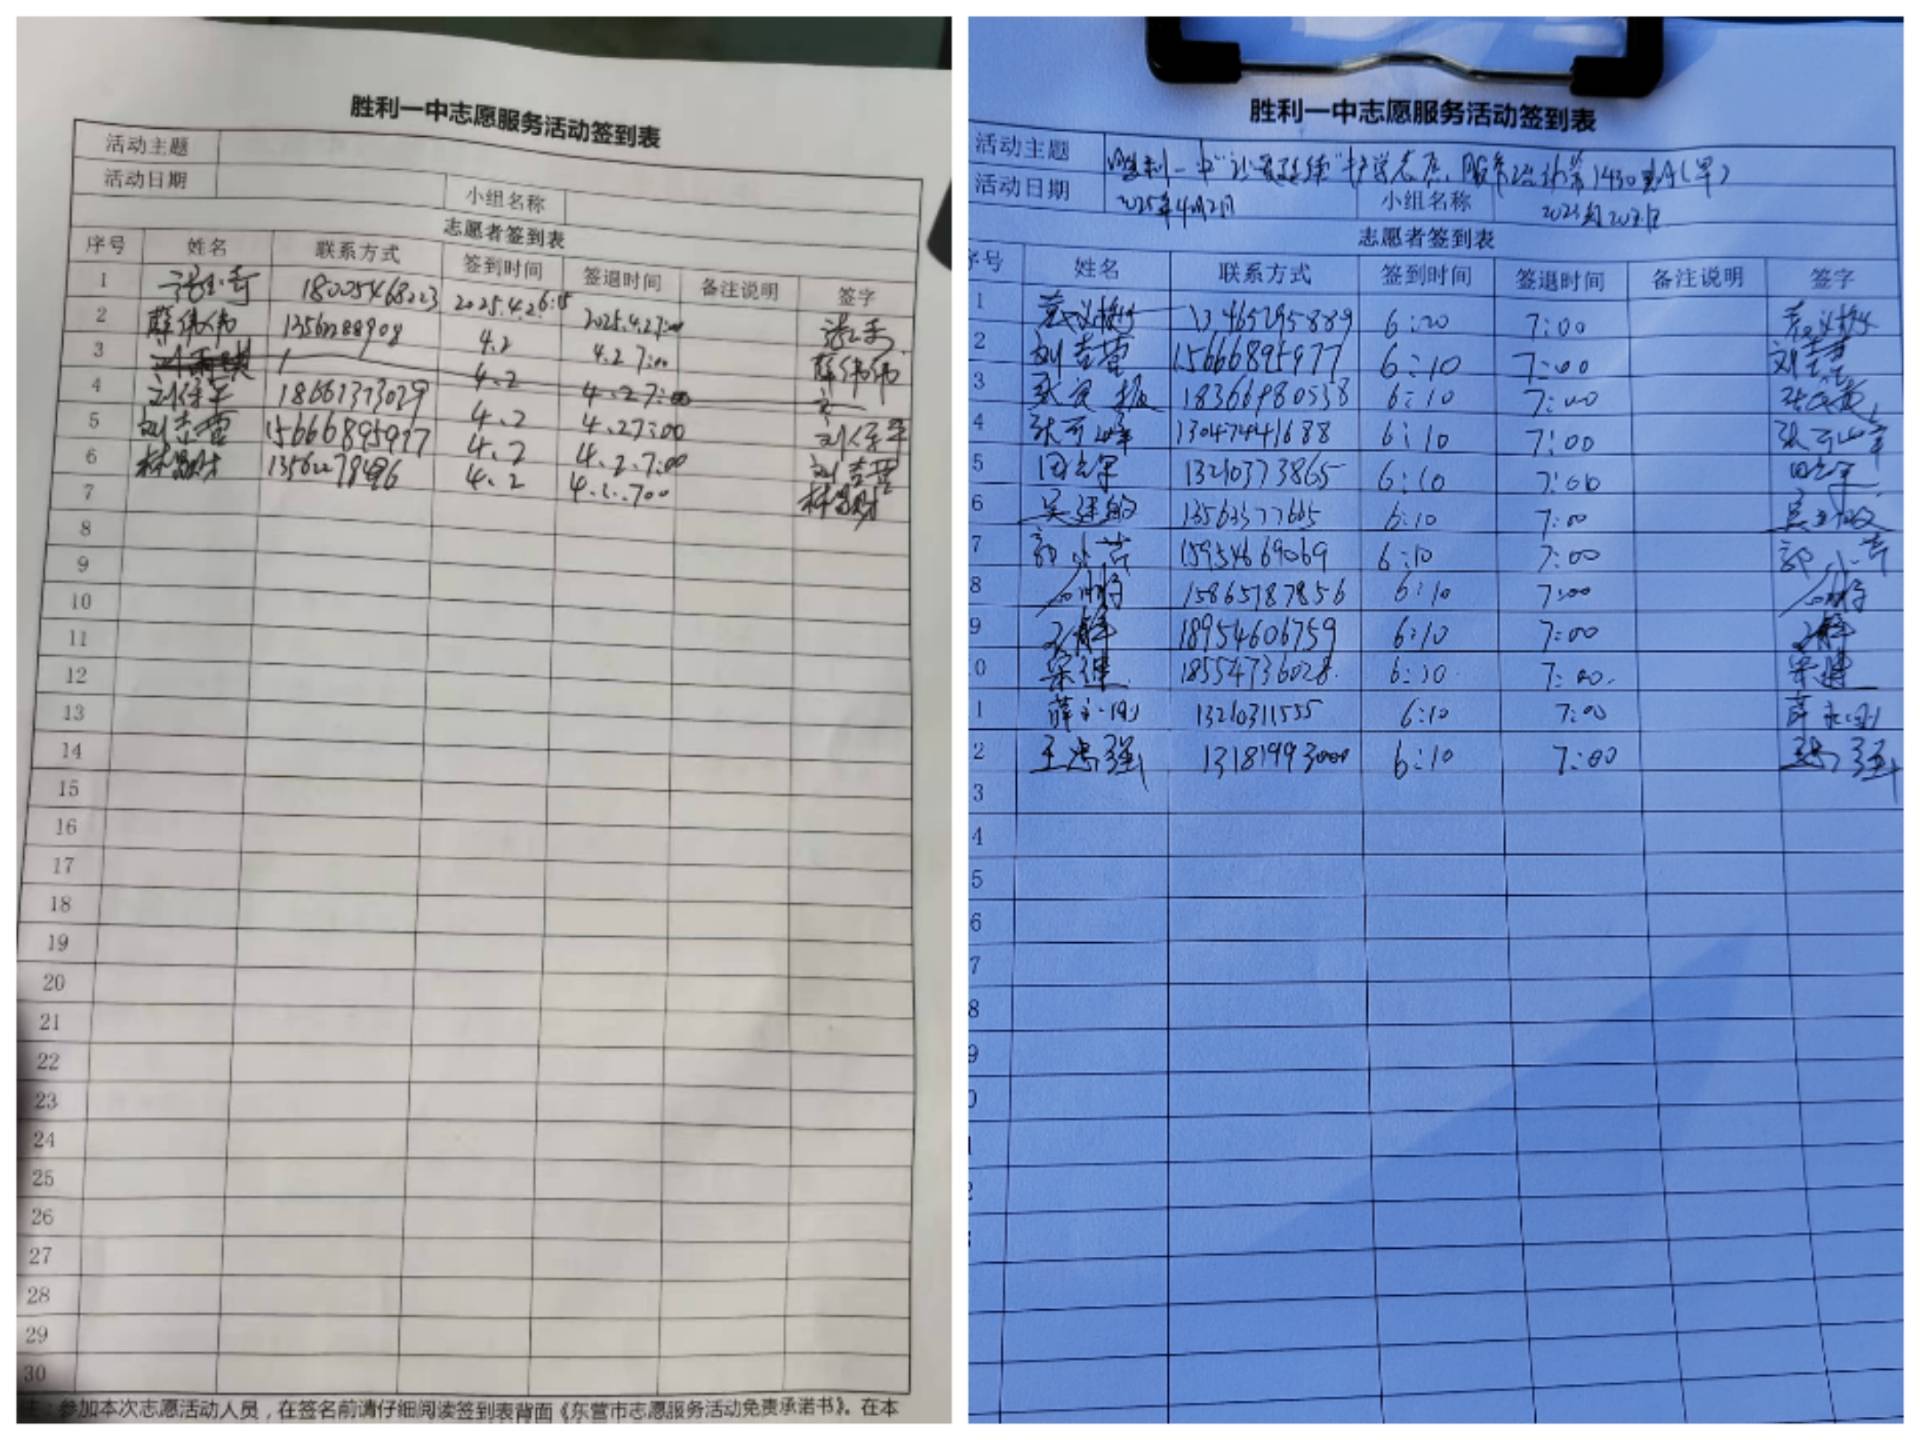 胜利一中志愿服务活动签到表
活动主题
活动日期 小组名称
志愿者签到表
序号 姓名 联系方式 签到时间 签退时间 备注说明 签字
1 18005468223 2025.4.2 6:15 2025.4.2 7:00
2 薛伟伟 13562288908 4.2 4.2 7:00 薛伟伟
3 4.2 4.2 7:00
4 18661373029 4.2 4.2 7:00
5 刘吉营 15666895977 4.2 4.2.7:00 刘吉营
6 4.2 7:00
7
8
9
10
11
12
13
14
15
16
17
18
19
20
21
22
23
24
25
26
27
28
29
30
参加本次志愿活动人员，在签名前请仔细阅读签到表背面《东营市志愿服务活动免责承诺书》。在本
胜利一中志愿服务活动签到表
活动主题 胜利一中"让爱延续"护学志愿服务活动第1430期(早)
活动日期 2025年4月2日 小组名称
志愿者签到表
序号 姓名 联系方式 签到时间 签退时间 备注说明 签字
1 13465295889 6:20 7:00
2 刘吉营 15666895977 6:10 7:00 刘吉营
3 18366980538 6:10 7:00
4 张可峰 13047441688 6:10 7:00 张可峰
5 田立军 13210373865 6:10 7:00 田立军
6 6:10 7:00
7 郭小芹 15954669069 6:10 7:00 郭小芹
8 15865787856 6:10 7:00
9 18954606759 6:10 7:00
0 梁建 18554736028 6:10 7:00 梁建
1 薛永刚 13210311555 6:10 7:00 薛永刚
2 王忠强 13181993000 6:10 7:00 王忠强
3
4
5
6
7
8
9
0
1
2